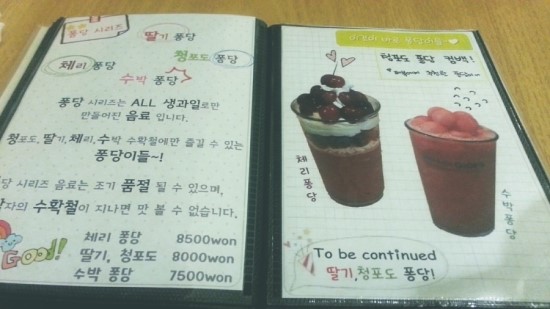 퐁당 시리즈
딸기 퐁당
청포도 퐁당
체리 퐁당
수박 퐁당
퐁당 시리즈는 ALL 생과일로만
만들어진 음료 입니다.
청포도, 딸기, 체리, 수박 수확철에만 즐길 수 있는
퐁당이들~!
퐁당 시리즈 음료는 조기 품절 될 수 있으며,
각자의 수확철이 지나면 맛 볼 수 없습니다.
Good!
체리 퐁당 8500won
딸기, 청포도 퐁당 8000won
수박 퐁당 7500won
퐁당이들~
청포도 퐁당 컴백!
체리퐁당
수박퐁당
To be continued
딸기,청포도 퐁당!